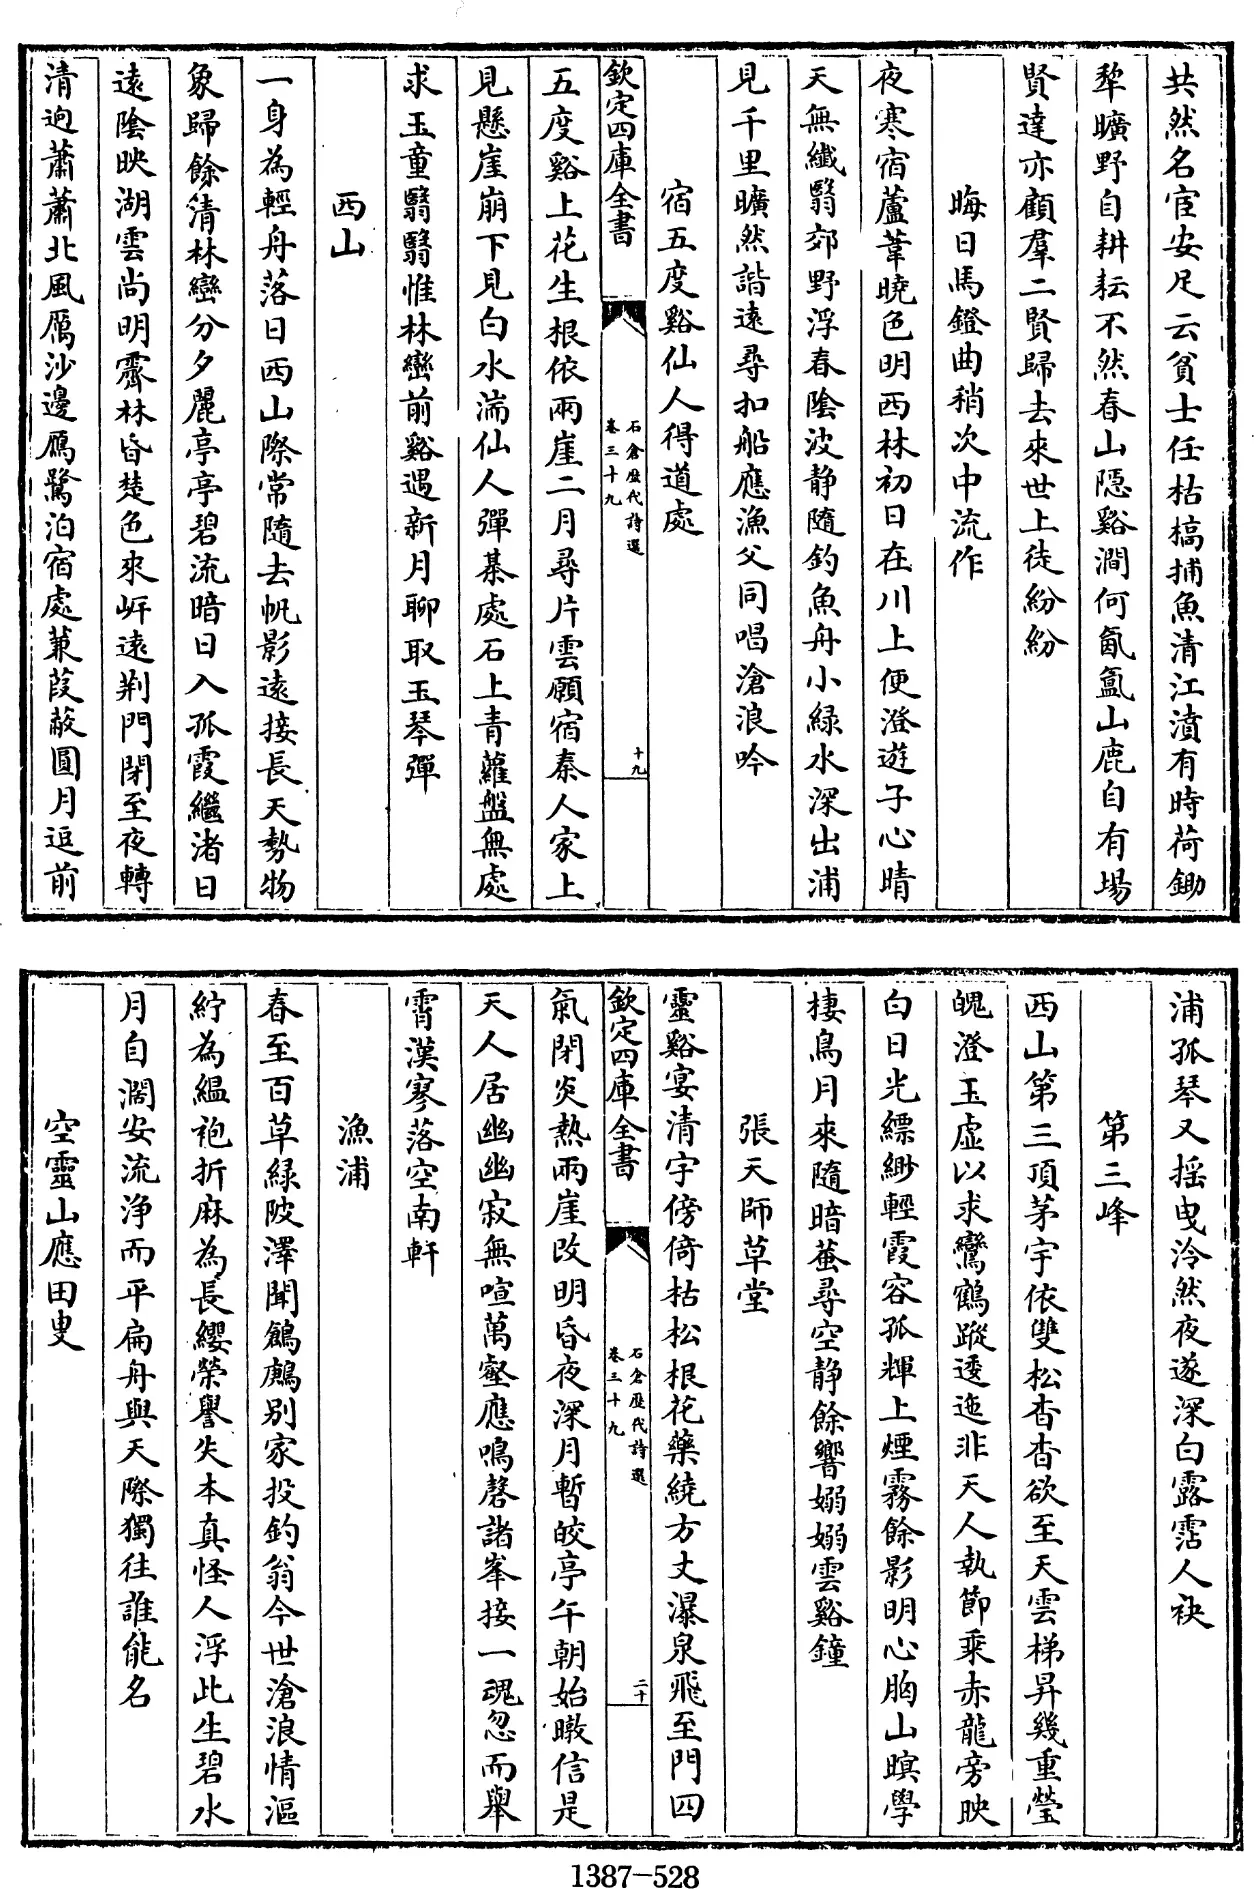 共然名宦安足云貧士任枯槁捕魚清江濆有時荷鋤
犂曠野自耕耘不然春山隱谿澗何氤氳山鹿自有場
賢達亦顧羣二賢歸去來世上徒紛紛
晦日馬鐙曲稍次中流作
夜寒宿蘆葦曉色明西林初日在川上便澄遊子心晴
天無纖翳郊野浮春陰波靜隨釣魚舟小綠水深出浦
見千里曠然諧遠尋扣船應漁父同唱滄浪吟
宿五度谿仙人得道處
欽定四庫全書
石倉歷代詩選
卷三十九
十九
五度谿上花生根依兩崖二月尋片雲願宿秦人家上
見懸崖崩下見白水湍仙人彈棊處石上青蘿盤無處
求玉童翳翳惟林巒前谿遇新月聊取玉琴彈
西山
一身為輕舟落日西山際常隨去帆影遠接長天勢物
象歸餘清林巒分夕麗亭亭碧流暗日入孤霞繼渚日
遠陰映湖雲尚明霽林昏楚色來岸遠荆門閉至夜轉
清逈蕭蕭北風厲沙邊鴈鷺泊宿處蒹葭蔽圓月逗前
浦孤琴又搖曳泠然夜遂深白露霑人袂
第三峰
西山第三頂茅宇依雙松杳杳欲至天雲梯昇幾重瑩
魄澄玉虛以求鸞鶴蹤逶迤非天人執節乘赤龍旁映
白日光縹緲輕霞容孤輝上煙霧餘影明心胸山暝學
棲鳥月來隨暗蛩尋空靜餘響嫋嫋雲谿鐘
張天師草堂
靈谿宴清宇傍倚枯松根花藥繞方丈瀑泉飛至門四
欽定四庫全書
石倉歷代詩選
卷三十九
二十
氣閉炎熱兩崖改明昏夜深月暫皎亭午朝始暾信是
天人居幽幽寂無喧萬壑應鳴磬諸峯接一魂忽而舉
霄漢寥落空南軒
漁浦
春至百草綠陂澤聞鶬鶊別家投釣翁今世滄浪情漚
紵為緼袍折麻為長纓榮譽失本真怪人浮此生碧水
月自濶安流淨而平扁舟與天際獨往誰能名
空靈山應田叟
1387-528